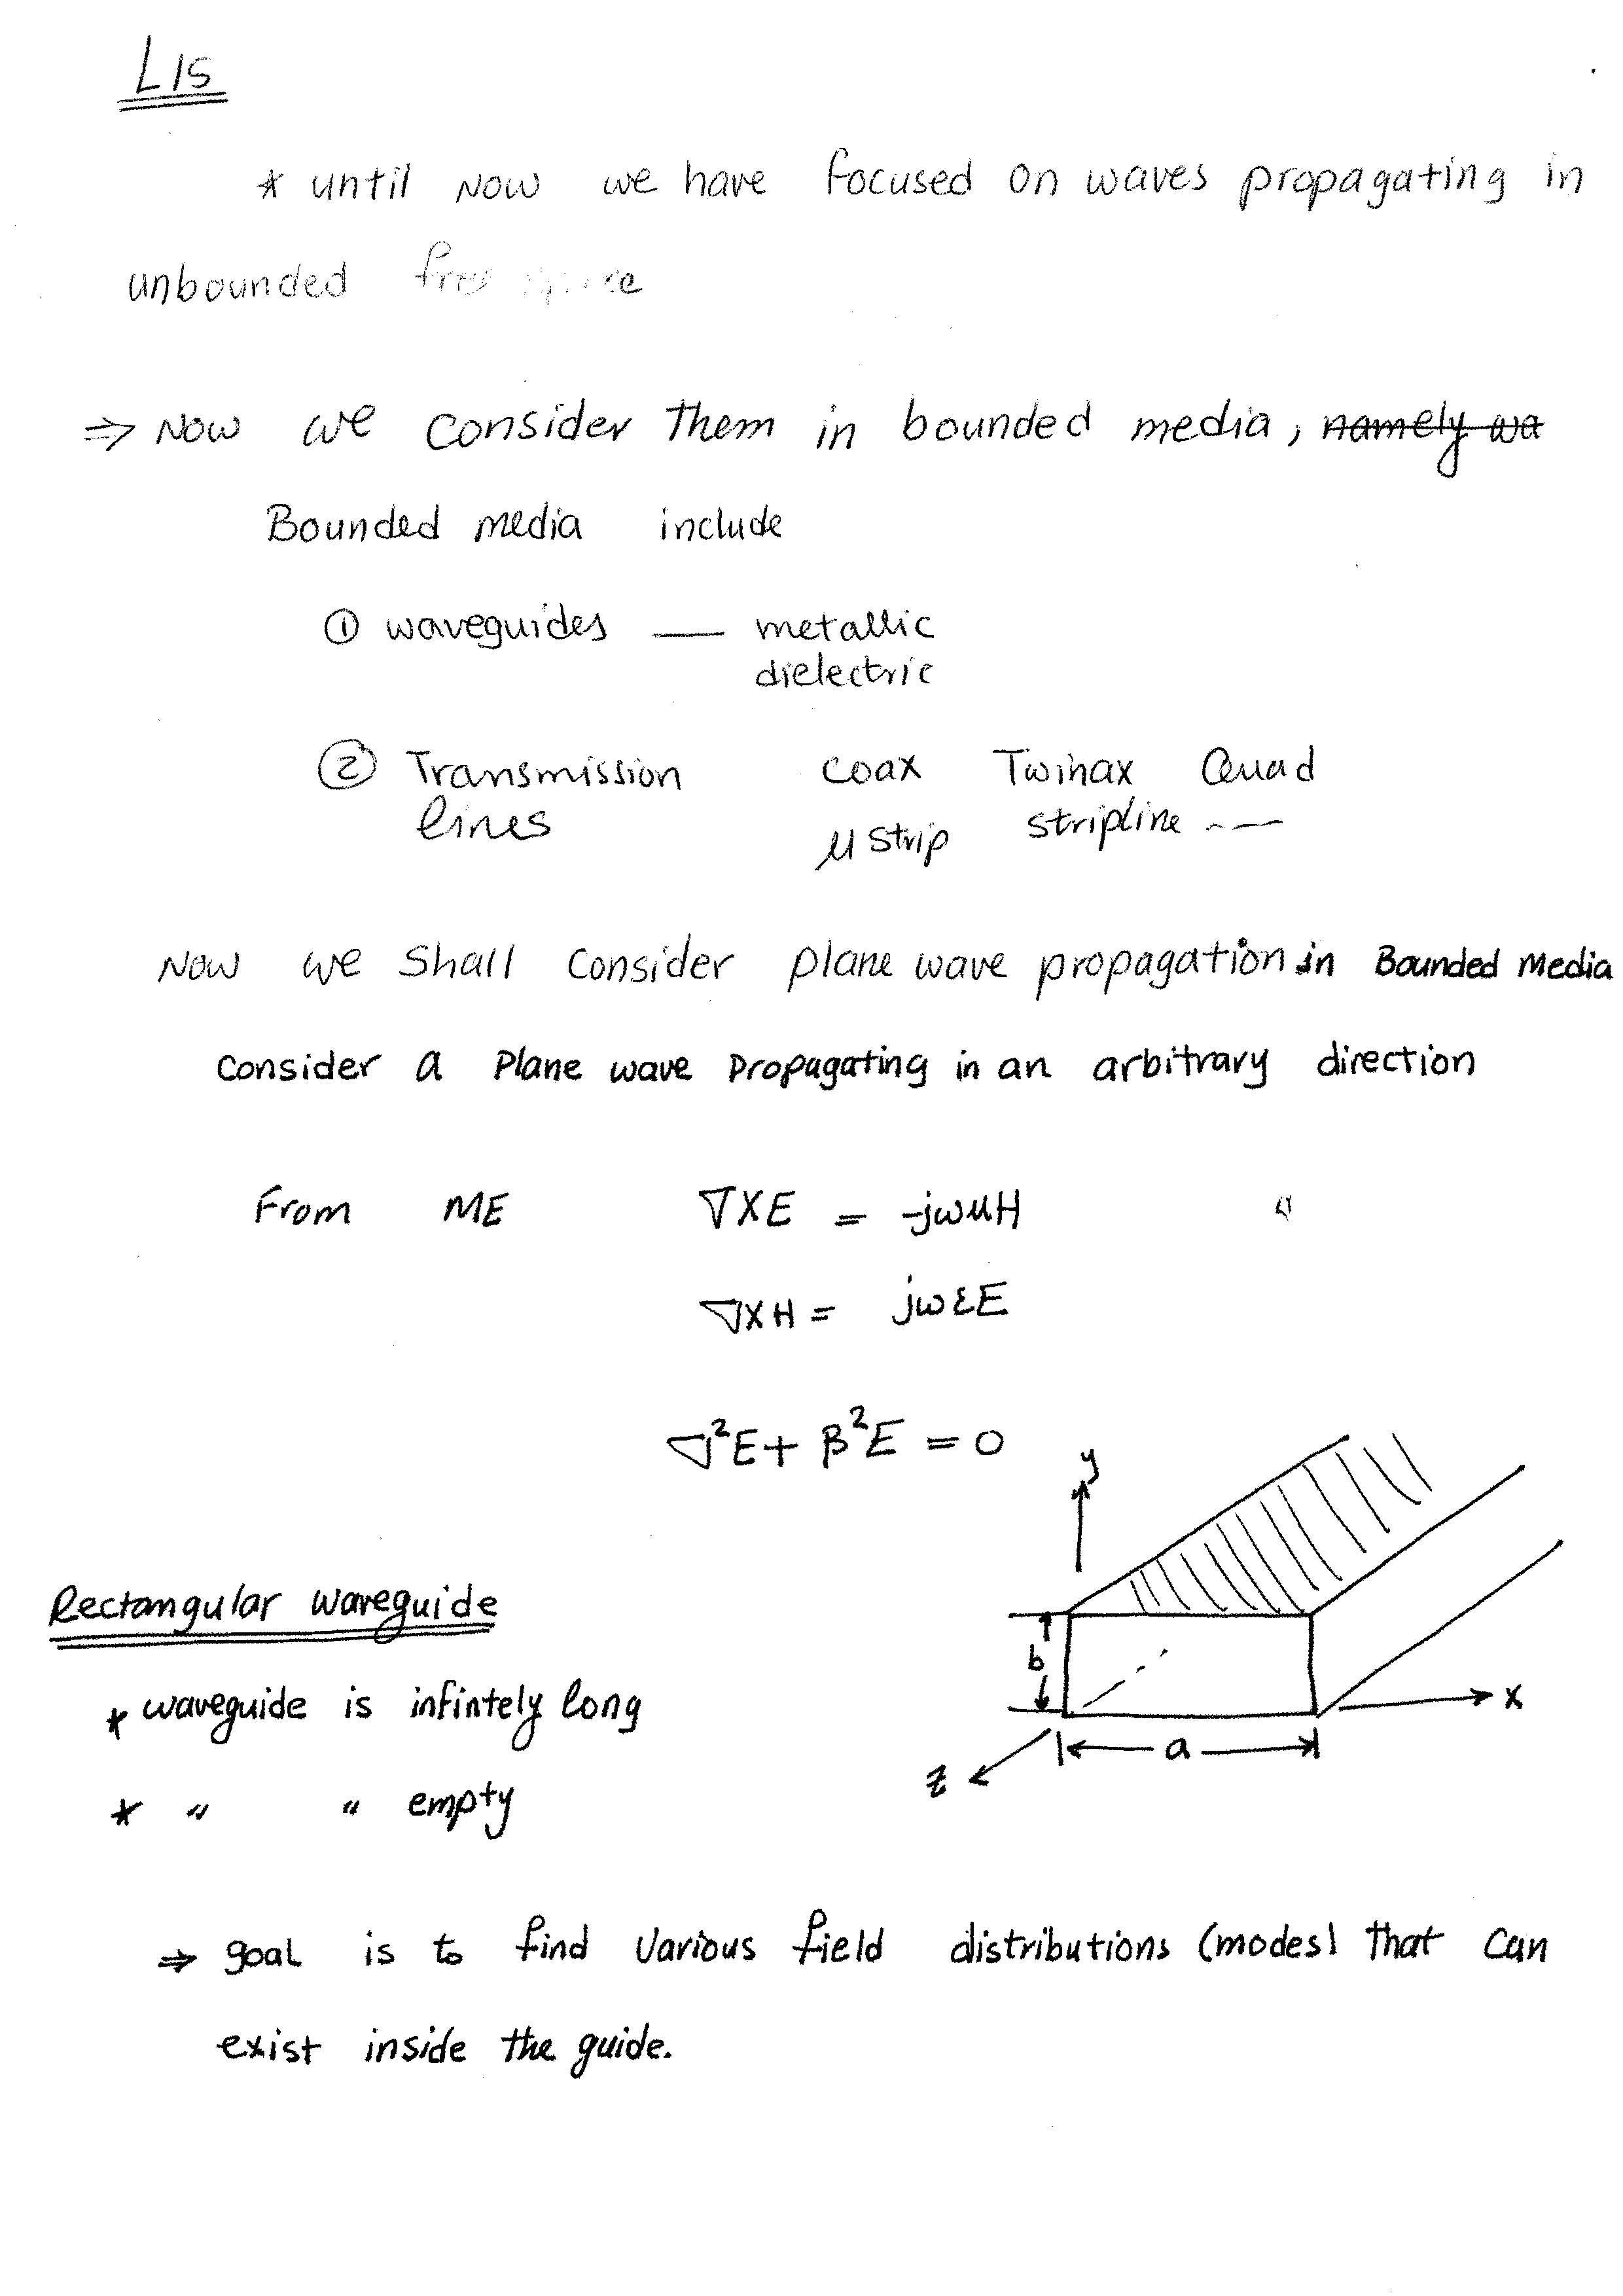 L15
* until now we have focused on waves propagating in
unbounded free space
⇒ Now we consider them in bounded media, namely wa
Bounded media include
① waveguides — metallic
dielectric
② Transmission coax Twinax Quad
lines μ strip stripline ---
Now we shall consider plane wave propagation in Bounded Media
consider a Plane wave Propagating in an arbitrary direction
From ME ∇XE = -jωμH
∇XH = jωεE
∇²E + β²E = 0
y
Rectangular waveguide
b
* waveguide is infintely long
x
a
z
* " " empty
⇒ goal is to find various field distributions (modes) that can
exist inside the guide.